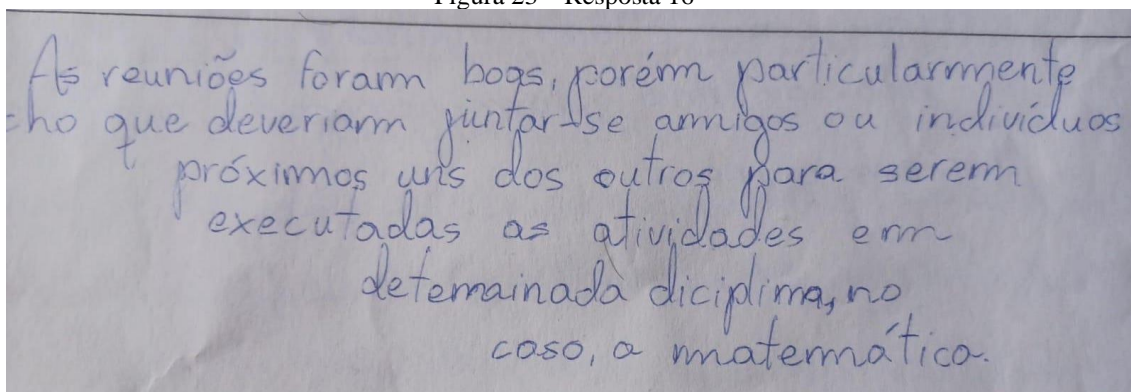 As reuniões foram boas, porém particularmente
cho que deveriam juntar-se amigos ou indivíduos
próximos uns dos outros para serem
executadas as atividades em
detemainada diciplima, no
caso, a matemática.